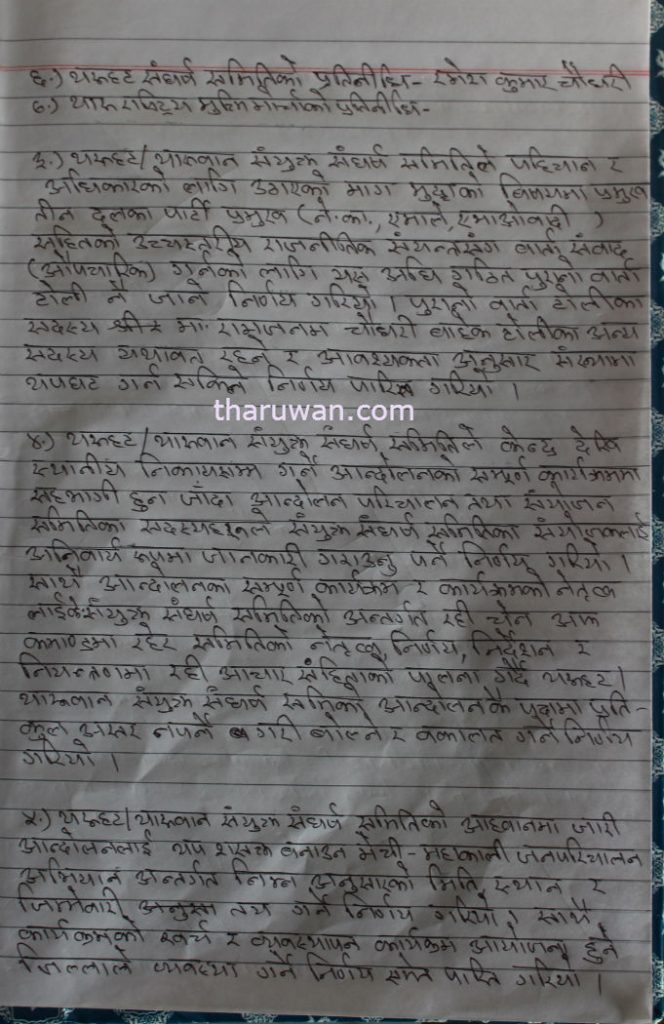 ६.) थरूहट संघर्ष समितिको प्रतिनिधि - रमेश कुमार चौधरी
७.) थारू राष्ट्रिय मुक्ति मोर्चाको प्रतिनिधि -
३.) थरूहट/थारूवान संयुक्त संघर्ष समितिले पहिचान र
अधिकारको लागि उठाएको माग मुद्दाका बिषयमा प्रमुख
तीन दलका पार्टी प्रमुख (ने.का., एमाले, एमाओवादी )
सहितको उच्चस्तरीय राजनीतिक संयन्त्रसंग वार्ता संवाद
(औपचारिक) गर्नको लागि यस अघि गठित पुरानो वार्ता
टोली नै जाने निर्णय गरियो । पुरानो वार्ता टोलीका
सदस्य मा. रामजनम चौधरी बाहेक टोलीका अन्य
सदस्य यथावत रहने र आवश्यकता अनुसार संख्यामा
थपघट गर्न सकिने निर्णय पारित गरियो ।
tharuwan.com
४.) थरूहट/थारूवान संयुक्त संघर्ष समितिले केन्द्र देखि
स्थानीय निकायसम्म गर्ने आन्दोलनको सम्पूर्ण कार्यक्रममा
सहभागी हुन जाँदा आन्दोलन परिचालन तथा संयोजन
समितिका सदस्यहरूले संयुक्त संघर्ष समितिका संयोजकलाई
अनिवार्य रूपमा जानकारी गराउनु पर्ने निर्णय गरियो ।
साथै आन्दोलनका सम्पूर्ण कार्यक्रम र कार्यक्रमको नेतृत्व
संयुक्त संघर्ष समितिको अन्तर्गत रही चेन अफ
कमाण्डमा रहेर समितिको नेतृत्व, निर्णय, निर्देशन र
नियन्त्रणमा रही आचार संहिताको पालना गर्दै थरूहट/
थारूवान संयुक्त संघर्ष समितिको आन्दोलनकै पक्षमा प्रति-
कूल असर नपर्ने गरी बोल्ने र वकालत गर्ने निर्णय
गरियो ।
५.) थरूहट/थारूवान संयुक्त संघर्ष समितिको आह्वानमा जारी
आन्दोलनलाई थप सशक्त बनाउन मेची - महाकाली जनपरिचालन
अभियान अन्तर्गत निम्न अनुसारको मिति, स्थान र
जिम्मेवारी अनुसार तय गर्ने निर्णय गरियो । साथै
कार्यक्रमको खर्च र व्यवस्थापन कार्यक्रम आयोजना हुने
जिल्लाले व्यवस्था गर्ने निर्णय समेत पारित गरियो ।